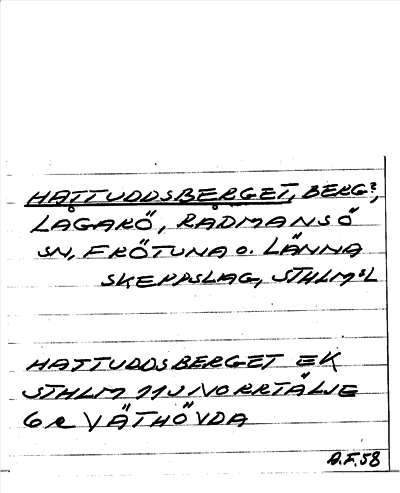 HATTUDDSBERGET, BERG?,
LÅGARÖ, RÅDMANSÖ
SN, FRÖTUNA O. LÄNNA
SKEPPSLAG, STHLMSL
HATTUDDSBERGET EK
STHLM 11J NORRTÄLJE
6e VÄTHÖVDA
58